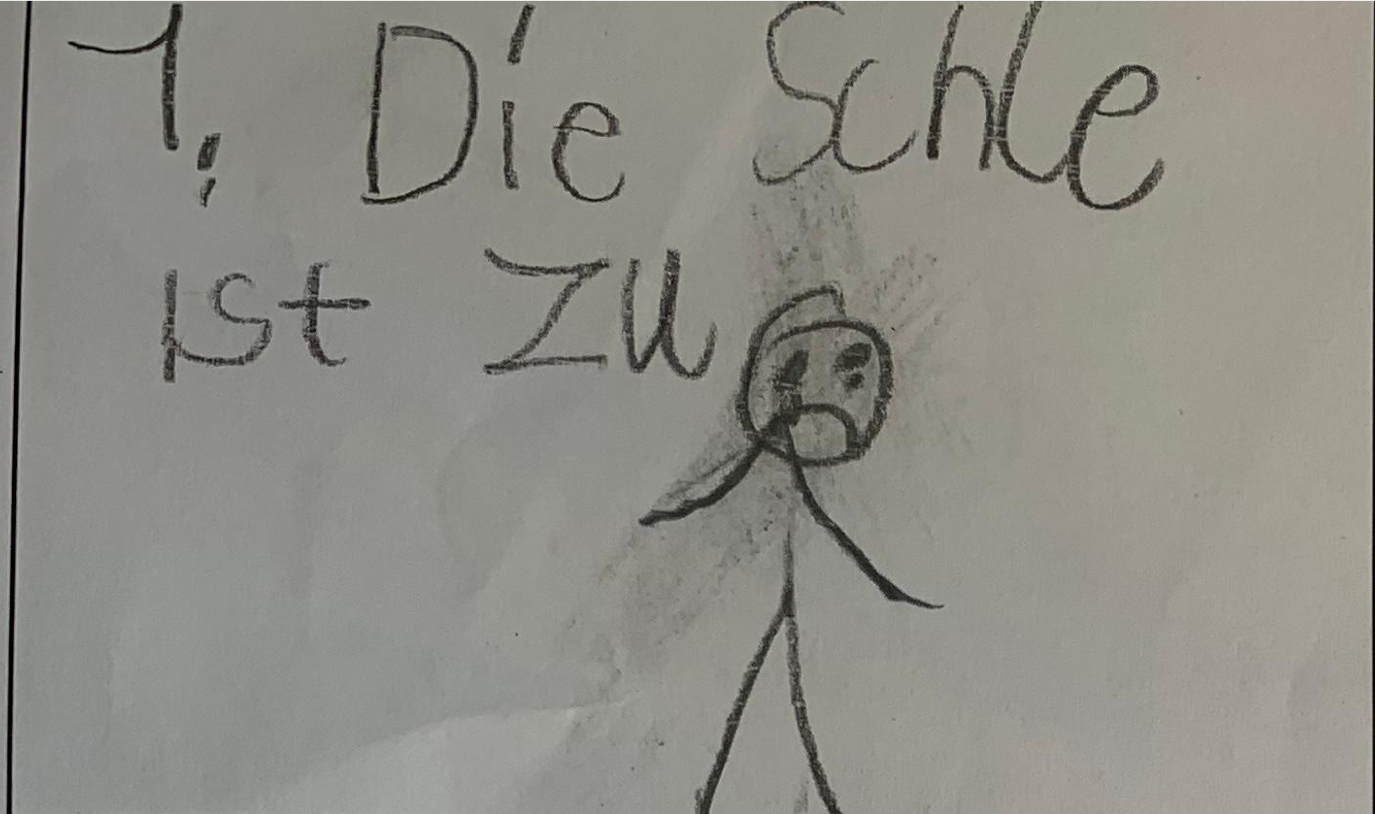 1. Die Schle
ist zu